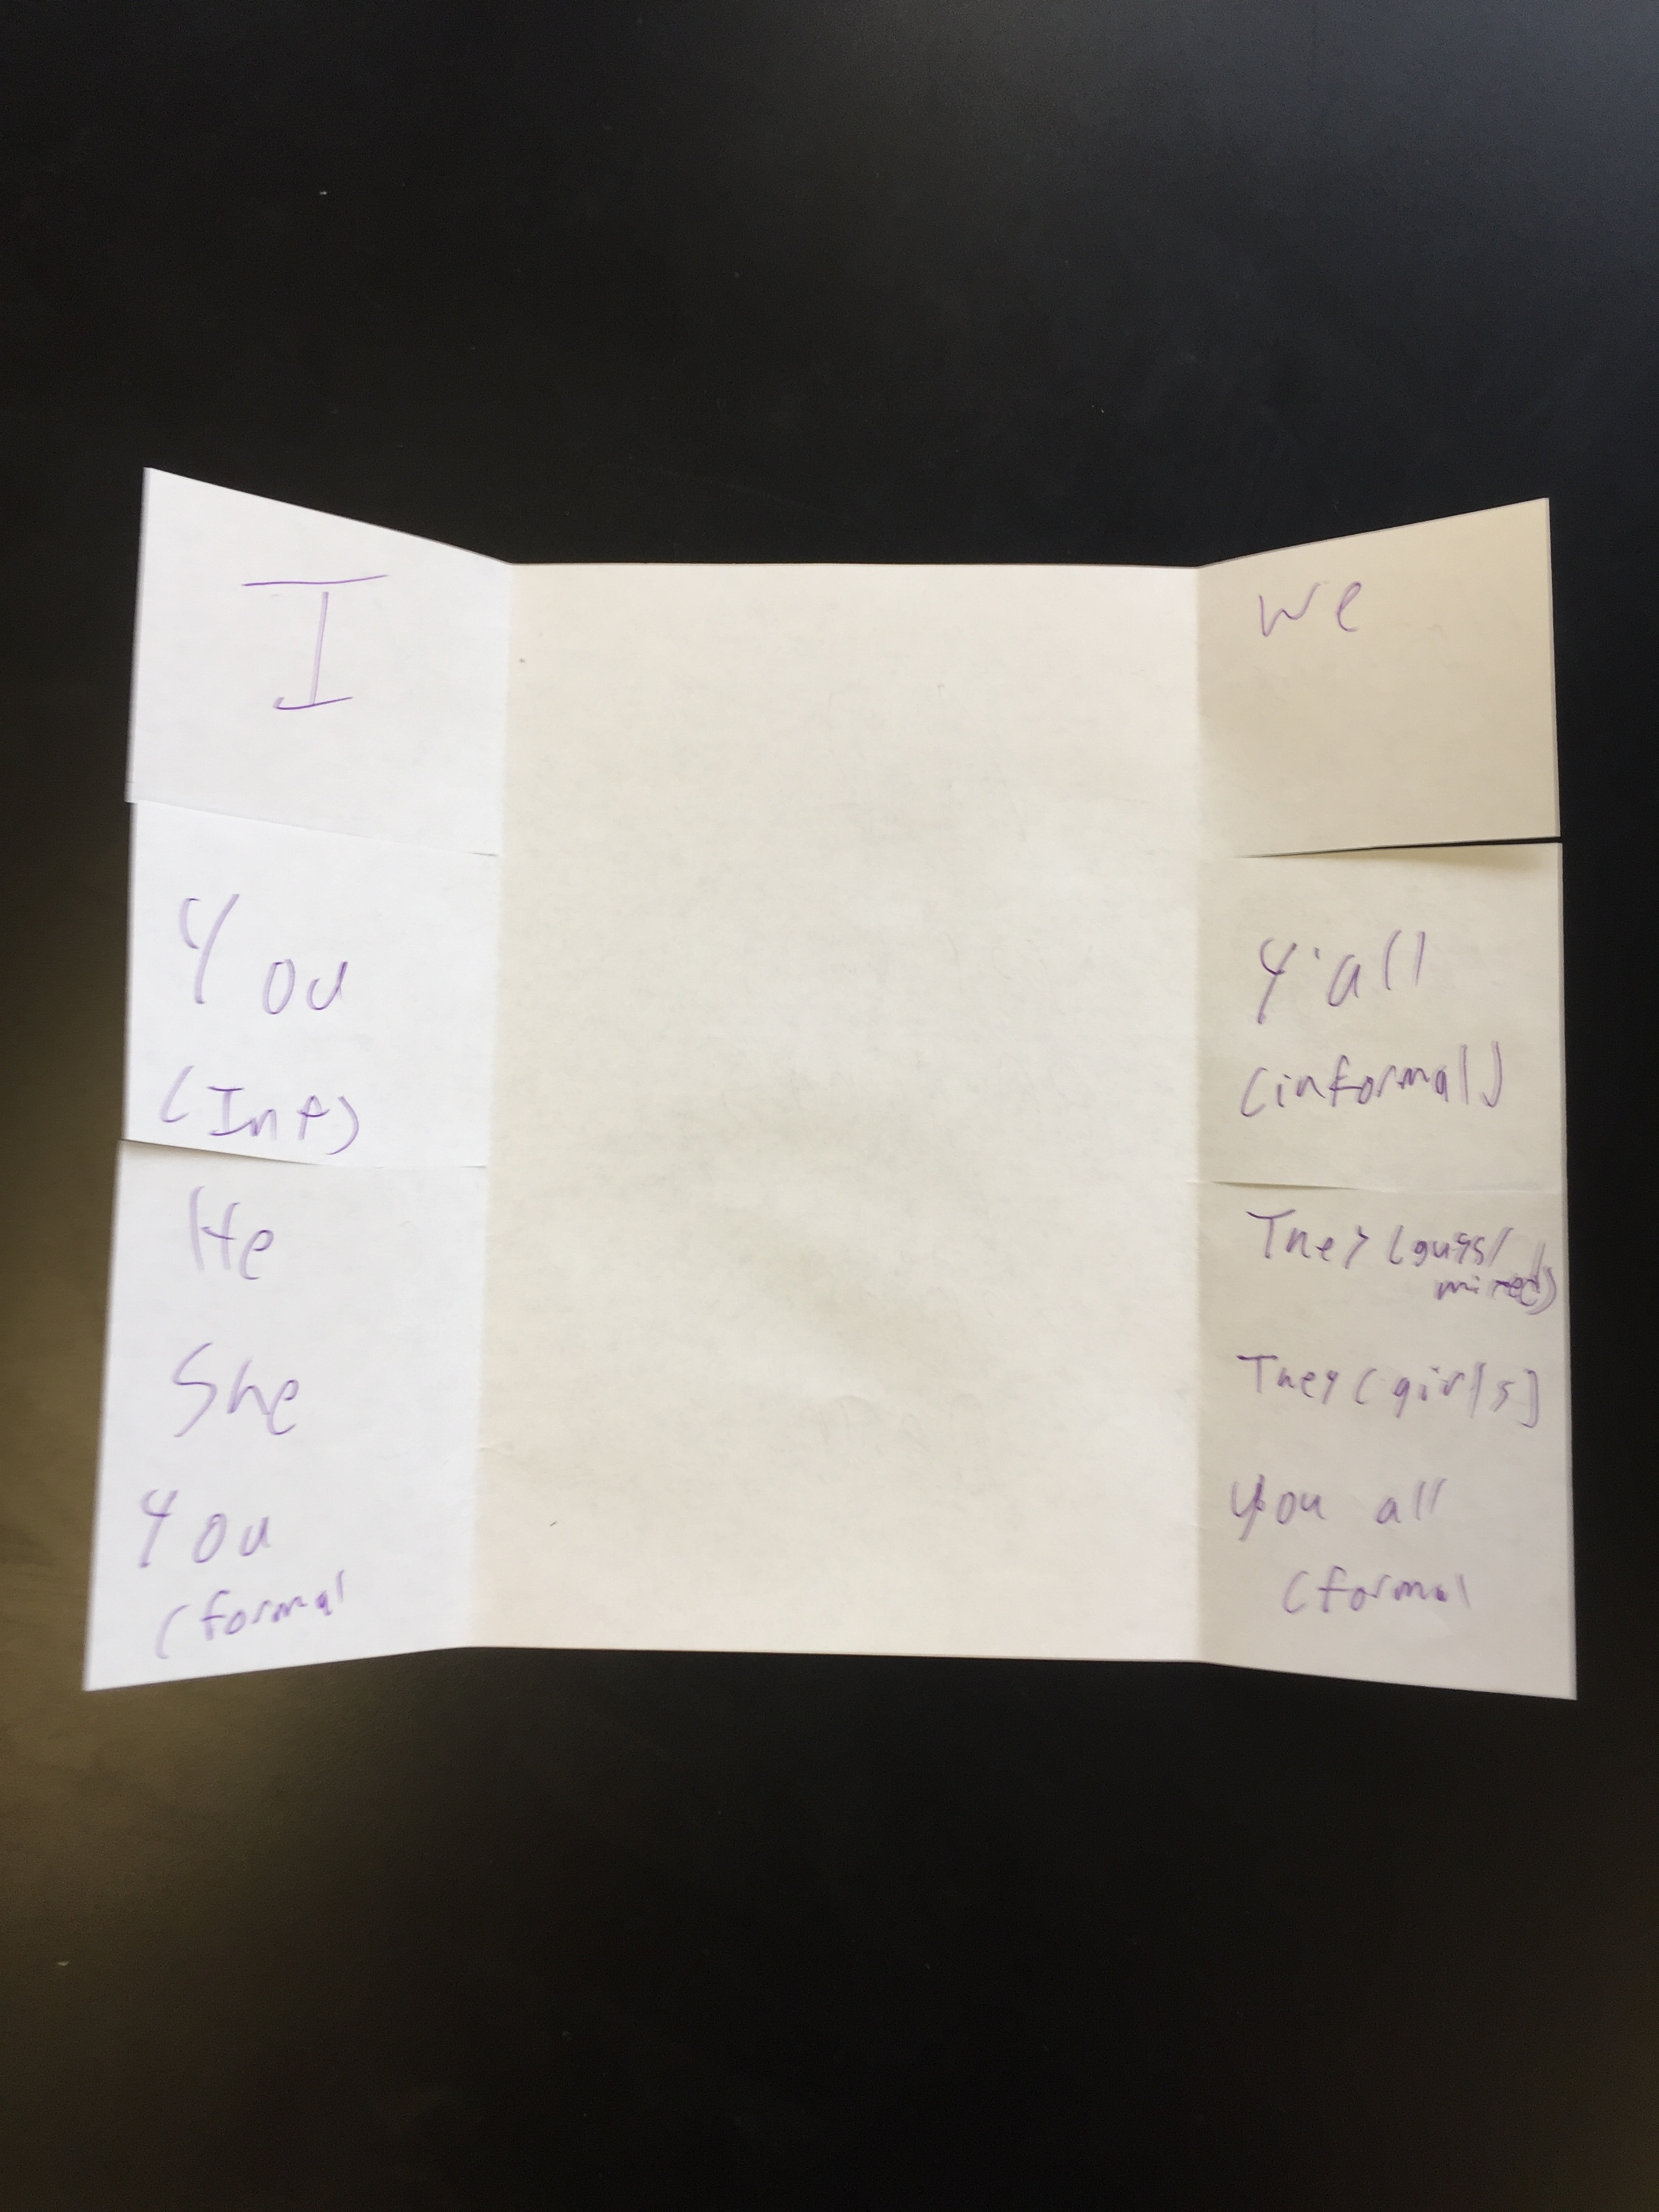 I
You
(Inf)
He
She
You
(formal
We
Y'all
(informal)
They (guys/
mixed)
They (girls)
You all
(formal